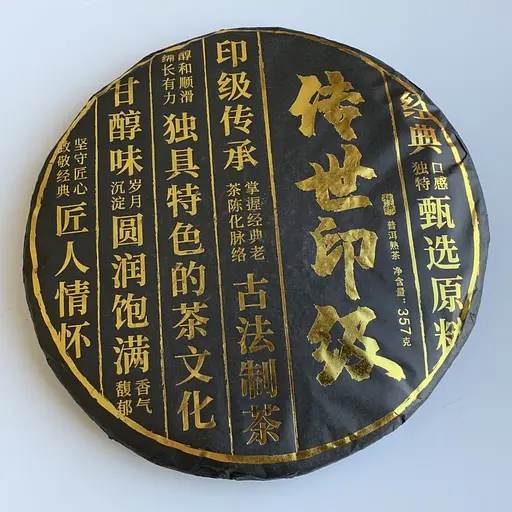 经典
口感
独特
甄选原料
传世印级
普洱熟茶 净含量:357克
印级传承
掌握经典老
茶陈化脉络
古法制茶
醇和顺滑
绵长有力
独具特色的茶文化
甘醇味
岁月
沉淀
圆润饱满
香气
馥郁
坚守匠心
致敬经典
匠人情怀